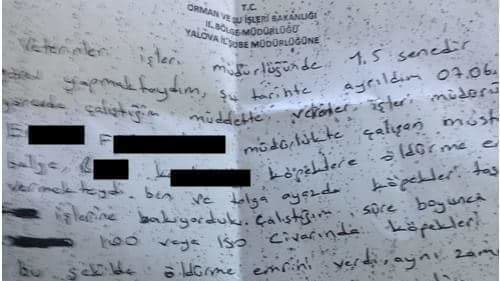 T.C.
ORMAN VE SU İŞLERİ BAKANLIĞI
II. BÖLGE MÜDÜRLÜĞÜ
YALOVA İL ŞUBE MÜDÜRLÜĞÜNE
Veteriner işleri müdürlüğünde 1,5 senedir
yapmaktaydım, şu tarihte ayrıldım 07.06
çalıştığım müddette veteriner işleri müdürü
E F müdürlükte çalışan
köpeklere öldürme
vermekteydi. ben ve tolga ayazda köpekleri
işlerine bakıyorduk. Çalıştığım süre boyunca
100 veya 150 civarında köpekleri
bu şekilde öldürme emrini verdi, aynı